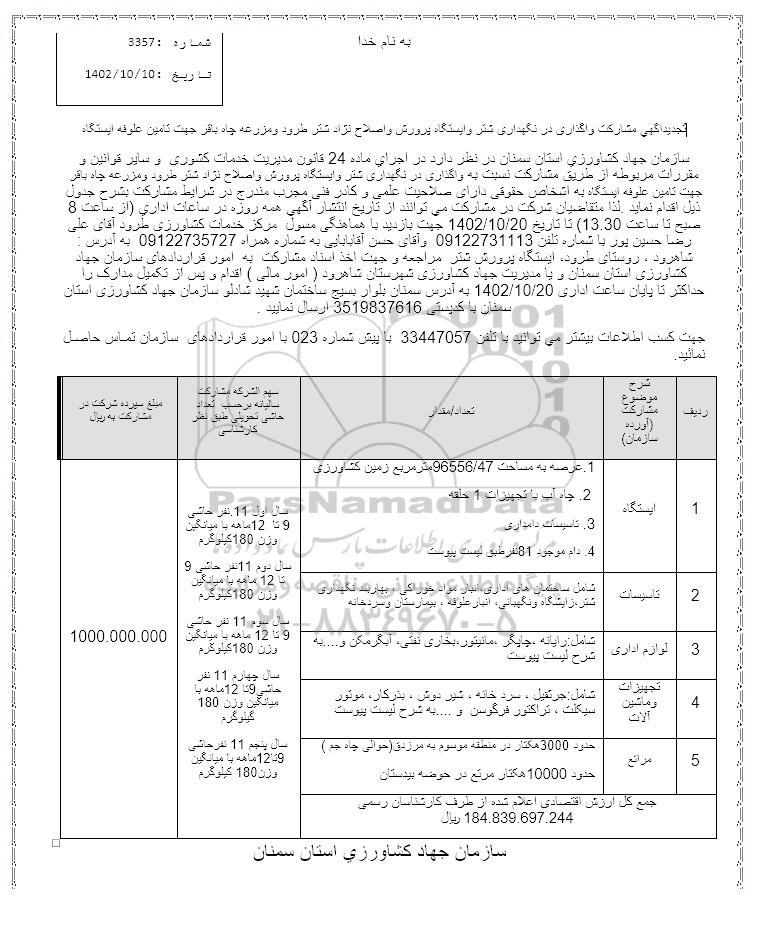 به نام خدا
شماره :3357
تاریخ :1402/10/10
تجدیداگهي مشارکت واگذاری در نگهداری شتر وایستگاه پرورش واصلاح نژاد شتر طرود ومزرعه چاه باقر جهت تامین علوفه ایستگاه
سازمان جهاد کشاورزي استان سمنان در نظر دارد در اجراي ماده 24 قانون مدیریت خدمات کشوری و سایر قوانین و
مقررات مربوطه از طریق مشارکت نسبت به واگذاری در نگهداری شتر وایستگاه پرورش واصلاح نژاد شتر طرود ومزرعه چاه باقر
جهت تامین علوفه ایستگاه به اشخاص حقوقی دارای صلاحیت علمی و کادر فنی مجرب مندرج در شرایط مشارکت بشرح جدول
ذیل اقدام نماید .لذا متقاضیان شرکت در مشارکت مي توانند از تاریخ انتشار آگهي همه روزه در ساعات اداري (از ساعت 8
صبح تا ساعت 13.30) تا تاریخ 1402/10/20 جهت بازدید با هماهنگي مسول مرکز خدمات کشاورزی طرود آقای علی
رضا حسین پور با شماره تلفن 09122731113 وآقای حسن آقابابایی به شماره همراه 09122735727 به آدرس :
شاهرود ، روستای طرود، ایستگاه پرورش شتر مراجعه و جهت اخذ اسناد مشارکت به امور قراردادهای سازمان جهاد
کشاورزی استان سمنان و یا مدیریت جهاد کشاورزی شهرستان شاهرود ( امور مالی ) اقدام و پس از تکمیل مدارک را
حداکثر تا پایان ساعت اداری 1402/10/20 به آدرس سمنان بلوار بسیج ساختمان شهید شادلو سازمان جهاد کشاورزی استان
سمنان با کدپستی 3519837616 ارسال نمایید .
جهت کسب اطلاعات بیشتر مي توانید با تلفن 33447057 با پیش شماره 023 با امور قراردادهای سازمان تماس حاصل
نمائید.
ردیف
شرح
موضوع
مشارکت
(آورده
سازمان)
تعداد/مقدار
سهم الشرکه مشارکت
سالیانه برحسب تعداد
حاشی تحویلی طبق نظر
کارشناسی
مبلغ سپرده شرکت در
مشارکت به ریال
1
ایستگاه
1.عرصه به مساحت 96556/47مترمربع زمین کشاورزی
2. چاه آب با تجهیزات 1 حلقه
3. تاسیسات دامداری
4. دام موجود 81نفرطبق لیست پیوست
2
تاسیسات
شامل ساختمان های اداری،انبار مواد خوراکی ، بهاربند نگهداری
شتر،زایشگاه ونگهبانی، انبارعلوفه ، بیمارستان وسردخانه
3
لوازم اداری
شامل:رایانه ،چاپگر ،مانیتور،بخاری نفتی، آبگرمکن و....به
شرح لیست پیوست
4
تجهیزات
وماشین
آلات
شامل:جرثقیل ، سرد خانه ، شیر دوش ، بذرکار، موتور
سیکلت ، تراکتور فرگوسن و ....به شرح لیست پیوست
5
مراتع
حدود 3000هکتار در منطقه موسوم به مرزدق(حوالی چاه جم )
حدود 10000هکتار مرتع در حوضه بیدستان
جمع کل ارزش اقتصادی اعلام شده از طرف کارشناسان رسمی
184.839.697.244 ریال
سال اول 11.نفر حاشی
9 تا 12ماهه با میانگین
وزن 180کیلوگرم
سال دوم 11نفر حاشی 9
تا 12 ماهه با میانگین
وزن 180کیلوگرم
سال سوم 11 نفر حاشی
9 تا 12 ماهه با میانگین
وزن 180کیلوگرم
سال چهارم 11 نفر
حاشی9تا 12ماهه با
میانگین وزن 180
کیلوگرم
سال پنجم 11 نفرحاشی
9تا12ماهه با میانگین
وزن180 کیلوگرم
1000.000.000
سازمان جهاد کشاورزي استان سمنان
ParsNamadData
۰۲۱-۸۸۳۴۹۶۷۰-۵